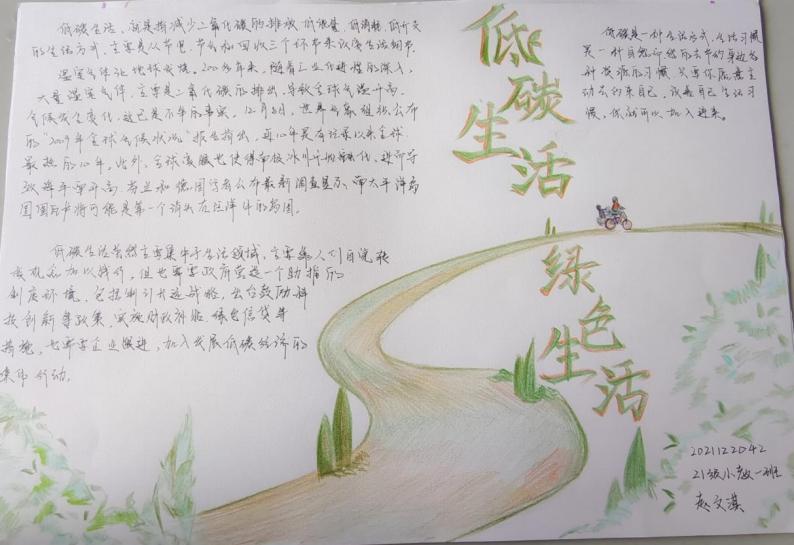 低碳生活，就是指减少二氧化碳的排放，低能量，低消耗，低开支
的生活方式，主要是从节电，节气和回收三个环节来改变生活细节。
温室气体让地球发烧。200多年来，随着工业化进程的深入，
大量温室气体，主要是二氧化碳的排出，导致全球气温升高，
气候发生变化，这已是不争的事实。12月8日，世界气象组织公布
的“2009年全球气候状况”报告指出，近10年是有记录以来全球
最热的10年。此外，全球变暖也使得南极冰川开始融化，进而导
致海平面升高。
低碳生活虽然主要集中于生活领域，主要靠人们自觉转
变观念加以践行，但也需要政府营造一个助推的
制度环境，包括制订长远战略，出台鼓励科
技创新等政策，实施财政补贴、绿色信贷等
措施，也需要企业跟进，加入发展低碳经济的
集体行动。
低碳
生活
绿色
生活
低碳是一种生活方式，生活习惯
是一种自然而然的去节约身边各
种资源的习惯，只要你愿意主
动去约束自己，改善自己生活习
惯，你就可以加入进来。
2021122042
21级小教一班
赵文淇